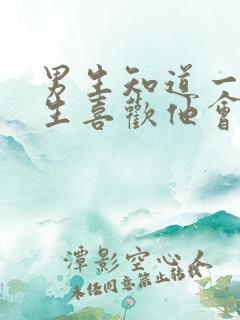 男生知道一
生喜歡他會
潭影空心人
未经同意禁止转载